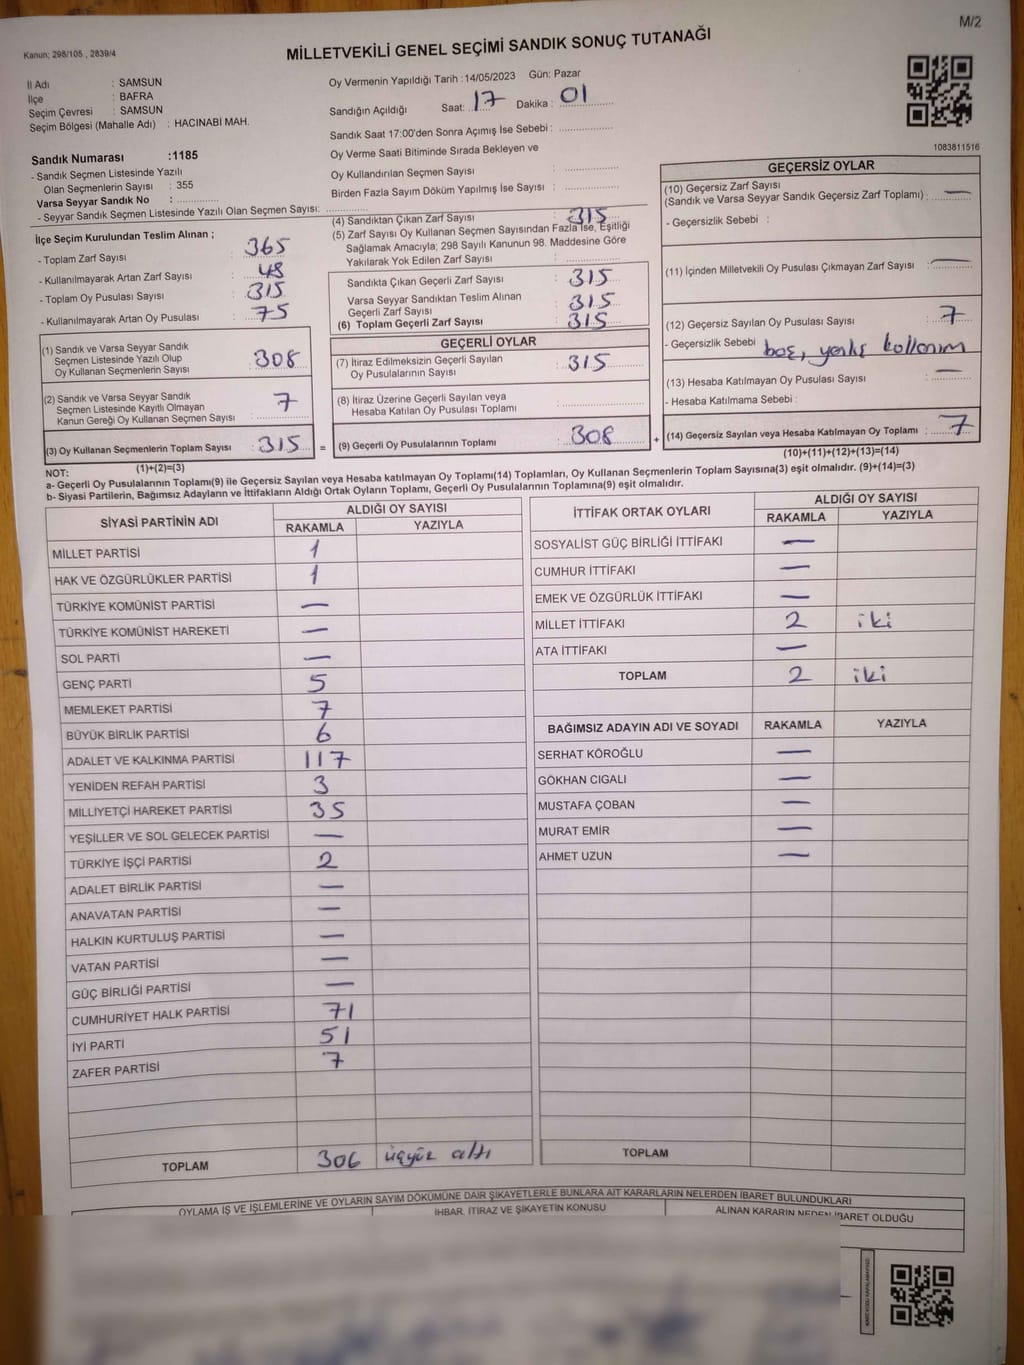 M/2
Kanun: 298/105 , 2839/4
MİLLETVEKİLİ GENEL SEÇİMİ SANDIK SONUÇ TUTANAĞI
İl Adı : SAMSUN
İlçe : BAFRA
Seçim Çevresi : SAMSUN
Seçim Bölgesi (Mahalle Adı) : HACINABİ MAH.
Sandık Numarası :1185
- Sandık Seçmen Listesinde Yazılı
Olan Seçmenlerin Sayısı : 355
Varsa Seyyar Sandık No :
- Seyyar Sandık Seçmen Listesinde Yazılı Olan Seçmen Sayısı:
Oy Vermenin Yapıldığı Tarih :14/05/2023 Gün: Pazar
Sandığın Açıldığı Saat: 17 Dakika : 01
Sandık Saat 17:00'den Sonra Açımış İse Sebebi :
Oy Verme Saati Bitiminde Sırada Bekleyen ve
Oy Kullandırılan Seçmen Sayısı :
Birden Fazla Sayım Döküm Yapılmış İse Sayısı :
1083811516
İlçe Seçim Kurulundan Teslim Alınan ;
- Toplam Zarf Sayısı : 365
- Kullanılmayarak Artan Zarf Sayısı : 48
- Toplam Oy Pusulası Sayısı : 315
- Kullanılmayarak Artan Oy Pusulası : 75
(1) Sandık ve Varsa Seyyar Sandık
Seçmen Listesinde Yazılı Olup
Oy Kullanan Seçmenlerin Sayısı : 308
(2) Sandık ve Varsa Seyyar Sandık
Seçmen Listesinde Kayıtlı Olmayan
Kanun Gereği Oy Kullanan Seçmen Sayısı : 7
(3) Oy Kullanan Seçmenlerin Toplam Sayısı : 315 =
(4) Sandıktan Çıkan Zarf Sayısı : 315
(5) Zarf Sayısı Oy Kullanan Seçmen Sayısından Fazla İse, Eşitliği
Sağlamak Amacıyla; 298 Sayılı Kanunun 98. Maddesine Göre
Yakılarak Yok Edilen Zarf Sayısı :
Sandıkta Çıkan Geçerli Zarf Sayısı : 315
Varsa Seyyar Sandıktan Teslim Alınan
Geçerli Zarf Sayısı : 315
(6) Toplam Geçerli Zarf Sayısı : 315
GEÇERLİ OYLAR
(7) İtiraz Edilmeksizin Geçerli Sayılan
Oy Pusulalarının Sayısı : 315
(8) İtiraz Üzerine Geçerli Sayılan veya
Hesaba Katılan Oy Pusulası Toplamı :
(9) Geçerli Oy Pusulalarının Toplamı : 308 +
GEÇERSİZ OYLAR
(10) Geçersiz Zarf Sayısı
(Sandık ve Varsa Seyyar Sandık Geçersiz Zarf Toplamı) : —
- Geçersizlik Sebebi :
(11) İçinden Milletvekili Oy Pusulası Çıkmayan Zarf Sayısı : —
(12) Geçersiz Sayılan Oy Pusulası Sayısı : 7
- Geçersizlik Sebebi boş, yanlış kullanım
(13) Hesaba Katılmayan Oy Pusulası Sayısı : —
- Hesaba Katılmama Sebebi :
(14) Geçersiz Sayılan veya Hesaba Katılmayan Oy Toplamı : 7
(1)+(2)=(3)
(10)+(11)+(12)+(13)=(14)
NOT:
a- Geçerli Oy Pusulalarının Toplamı(9) ile Geçersiz Sayılan veya Hesaba katılmayan Oy Toplamı(14) Toplamları, Oy Kullanan Seçmenlerin Toplam Sayısına(3) eşit olmalıdır. (9)+(14)=(3)
b- Siyasi Partilerin, Bağımsız Adayların ve İttifakların Aldığı Ortak Oyların Toplamı, Geçerli Oy Pusulalarının Toplamına(9) eşit olmalıdır.
SİYASİ PARTİNİN ADI ALDIĞI OY SAYISI
RAKAMLA YAZIYLA
MİLLET PARTİSİ 1
HAK VE ÖZGÜRLÜKLER PARTİSİ 1
TÜRKİYE KOMÜNİST PARTİSİ —
TÜRKİYE KOMÜNİST HAREKETİ —
SOL PARTİ —
GENÇ PARTİ 5
MEMLEKET PARTİSİ 7
BÜYÜK BİRLİK PARTİSİ 6
ADALET VE KALKINMA PARTİSİ 117
YENİDEN REFAH PARTİSİ 3
MİLLİYETÇİ HAREKET PARTİSİ 35
YEŞİLLER VE SOL GELECEK PARTİSİ —
TÜRKİYE İŞÇİ PARTİSİ 2
ADALET BİRLİK PARTİSİ —
ANAVATAN PARTİSİ —
HALKIN KURTULUŞ PARTİSİ —
VATAN PARTİSİ —
GÜÇ BİRLİĞİ PARTİSİ —
CUMHURİYET HALK PARTİSİ 71
İYİ PARTİ 51
ZAFER PARTİSİ 7
TOPLAM 306 üçyüz altı
İTTİFAK ORTAK OYLARI ALDIĞI OY SAYISI
RAKAMLA YAZIYLA
SOSYALİST GÜÇ BİRLİĞİ İTTİFAKI —
CUMHUR İTTİFAKI —
EMEK VE ÖZGÜRLÜK İTTİFAKI —
MİLLET İTTİFAKI 2 iki
ATA İTTİFAKI —
TOPLAM 2 iki
BAĞIMSIZ ADAYIN ADI VE SOYADI RAKAMLA YAZIYLA
SERHAT KÖROĞLU —
GÖKHAN CIGALI —
MUSTAFA ÇOBAN —
MURAT EMİR —
AHMET UZUN —
TOPLAM
OYLAMA İŞ VE İŞLEMLERİNE VE OYLARIN SAYIM DÖKÜMÜNE DAİR ŞİKAYETLERLE BUNLARA AİT KARARLARIN NELERDEN İBARET BULUNDUKLARI
İHBAR, İTİRAZ VE ŞİKAYETİN KONUSU
ALINAN KARARIN NEDEN İBARET OLDUĞU